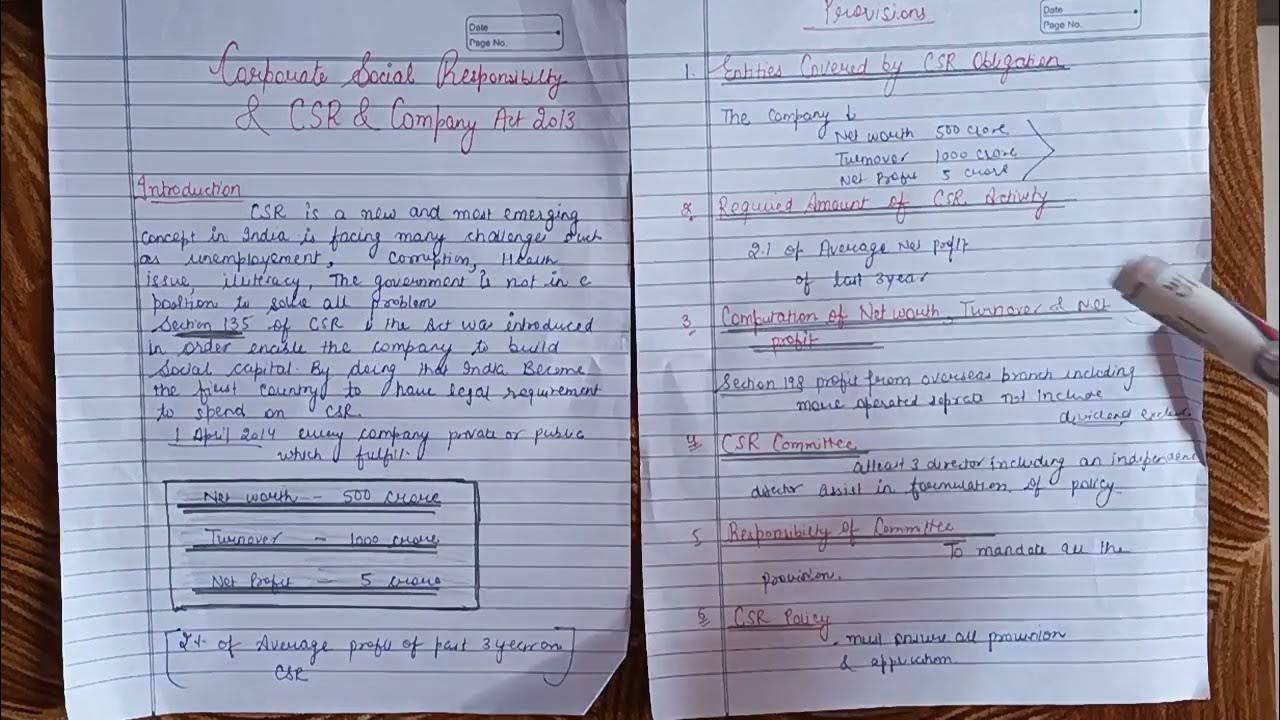 Date
Page No.
Corporate Social Responsibility
& CSR & Company Act 2013
Introduction
CSR is a new and most emerging
concept in India is facing many challenge such
as unemployement, Corruption, Health
issue, illiteracy, The government is not in a
position to solve all problem
Section 135 of CSR & the Act was introduced
in order enable the company to build
Social capital. By doing that India Become
the first country to have legal requirement
to spend on CSR.
1 April 2014 every company private or public
which fulfil.
Net worth - 500 crore
Turnover - 1000 crore
Net Profit - 5 crore
2% of Average profit of past 3 year on
CSR
Provisions
Date
Page No.
1. Entities Covered by CSR Obligation
The Company
Net worth 500 Crore
Turnover 1000 crore
Net Profit 5 crore
2. Required Amount of CSR Activity
2% of Average Net profit
of last 3 year
3. Computation of Net worth, Turnover & Net
profit
Section 198 profit from overseas branch including
operated seprate not Include
dividend
4. CSR Committee
atleast 3 director including an independent
director assist in formulation of policy
5. Responsibility of Committee
To mandate all the
provision.
CSR Policy
must ensure all provision
& application.